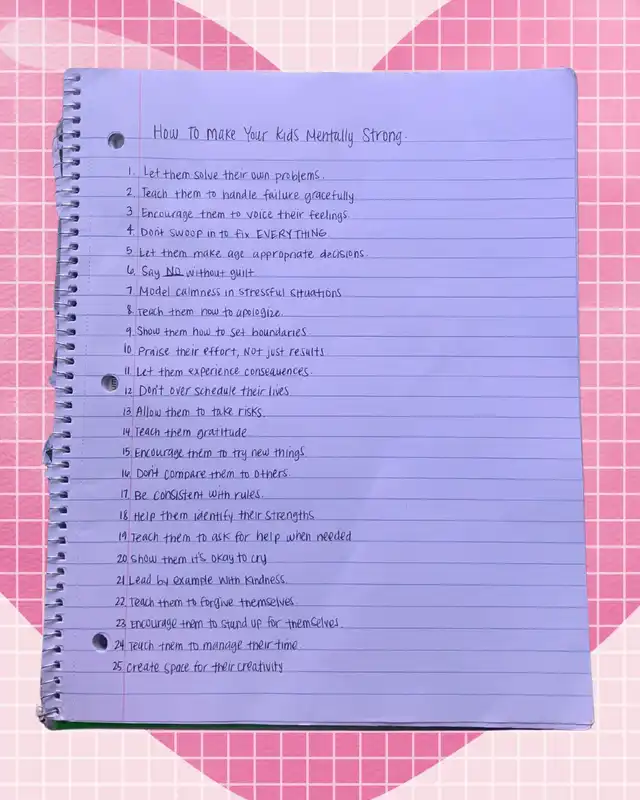 How To Make Your Kids Mentally Strong.
1. Let them solve their own problems.
2. Teach them to handle failure gracefully
3 Encourage them to voice their feelings
4 Dont swoop in to fix EVERYTHING
5. Let them make age appropriate decisions.
6. Say NO without guilt
7 Model calmness in stressful situations
8. Teach them how to apologize.
9. Show them how to set boundaries
10 Praise their effort, NOT just results
11. Let them experience consequences.
12 Don't over schedule their lives
13. Allow them to take risks.
14. Teach them gratitude
15. Encourage them to try new things
16. Don't compare them to others.
17. Be consistent with rules.
18 Help them identify their strengths
19 Teach them to ask for help when needed
20 Show them it's okay to cry
21 Lead by example with kindness.
22. Teach them to forgive themselves.
23 Encourage them to stand up for themselves.
24 Teach them to manage their time
25 Create space for their creativity